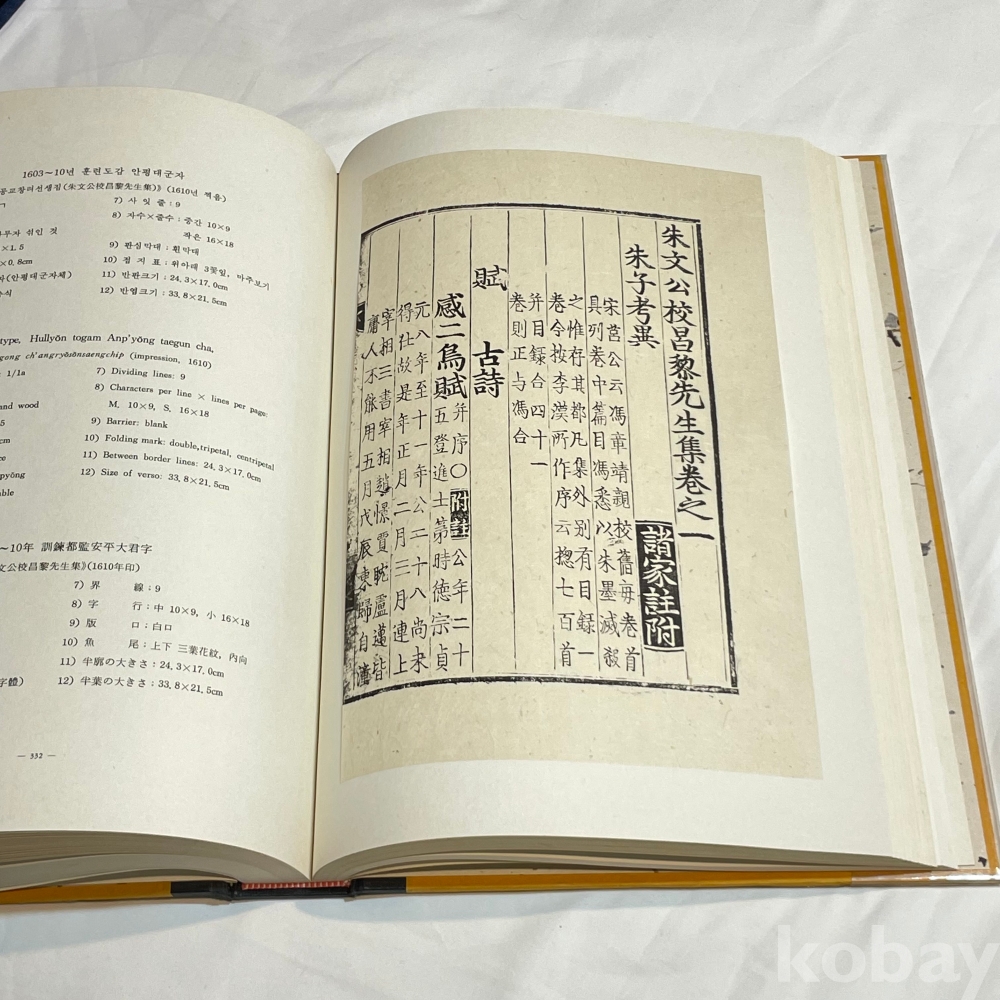 1603~10년 훈련도감 안평대군자
공교창려선생집(朱文公校昌黎先生集)》(1610년 찍음)
7) 사 잇 줄 : 9
8) 자수×줄수 : 중간 10×9
작은 16×18
나무자 섞인 것
×1.5
9) 판심막대 : 흰막대
×0.8cm
10) 접 지 표 : 위아래 3꽃잎, 마주보기
(안평대군자체)
11) 반판크기 : 24.3×17.0cm
12) 반엽크기 : 33.8×21.5cm
type, Hullyŏn togam Anp'yŏng taegun cha,
gong ch'angryŏsŏnsaengchip (impression, 1610)
: 1/1a
7) Dividing lines: 9
8) Characters per line × lines per page:
M. 10×9, S. 16×18
and wood
9) Barrier: blank
5cm
10) Folding mark: double, tripetal, centripetal
cm
11) Between border lines: 24.3×17.0cm
pyŏng
12) Size of verso: 33.8×21.5cm
able
~10年 訓鍊都監安平大君字
文公校昌黎先生集》(1610年印)
7) 界 線 : 9
8) 字 行 : 中 10×9, 小 16×18
9) 版 口 : 白口
10) 魚 尾 : 上下 三葉花紋, 內向
11) 半廓の大きさ : 24.3×17.0cm
字體)
12) 半葉の大きさ : 33.8×21.5cm
— 332 —
朱文公校昌黎先生集卷之一
朱子考異 諸家註附
宋莒公云馮章靖親校舊毎卷首
具列卷中篇目馮悉以朱墨滅殺
之惟存其都凡集外别有目録一
卷今按李漢所作序云揔七百首
并目録合四十一
卷則正与馮合
賦 古詩
感二鳥賦 并序○附註公年二十
五登進士第時德宗貞
元八年至十一年公二十八尚未
得仕故是年正月二月三月連上
宰相三書宰相趙憬賈耽盧邁皆
庸人不能用五月戊辰東歸自潼
kobay